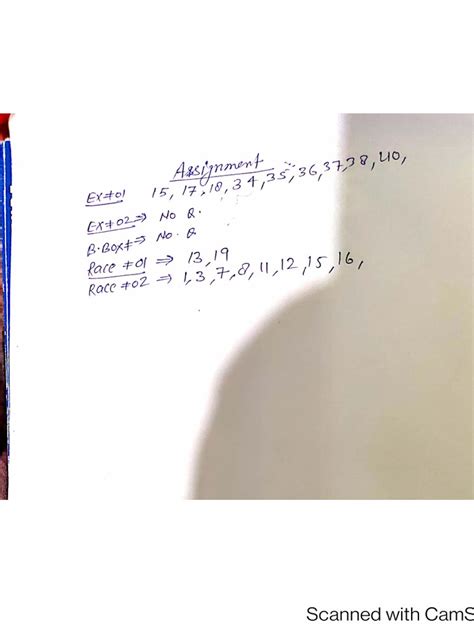 Assignment
Ex#01 15, 17, 18, 34, 35, 36, 37, 38, 40,
Ex#02 ⇒ No Q.
B.Box# ⇒ No. Q
Race #01 ⇒ 13, 19
Race #02 ⇒ 1, 3, 7, 8, 11, 12, 15, 16,
Scanned with CamS